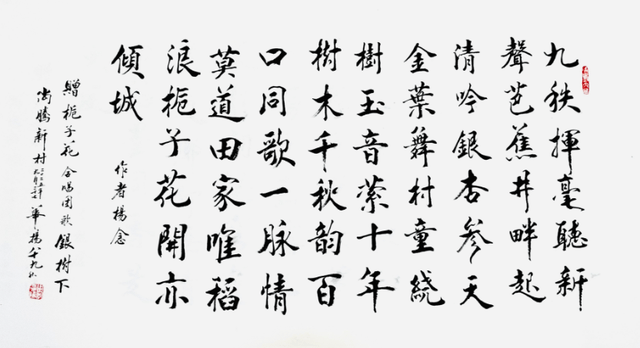 九秩揮毫聽新
聲芭蕉井畔起
清吟銀杏參天
金葉舞村童繞
樹玉音縈十年
樹木千秋韵百
口同歌一脉情
莫道田家唯稻
浪栀子花開亦
傾城
作者楊念
贈栀子花合唱團歌銀樹下
尚騰新村
華楊八十九